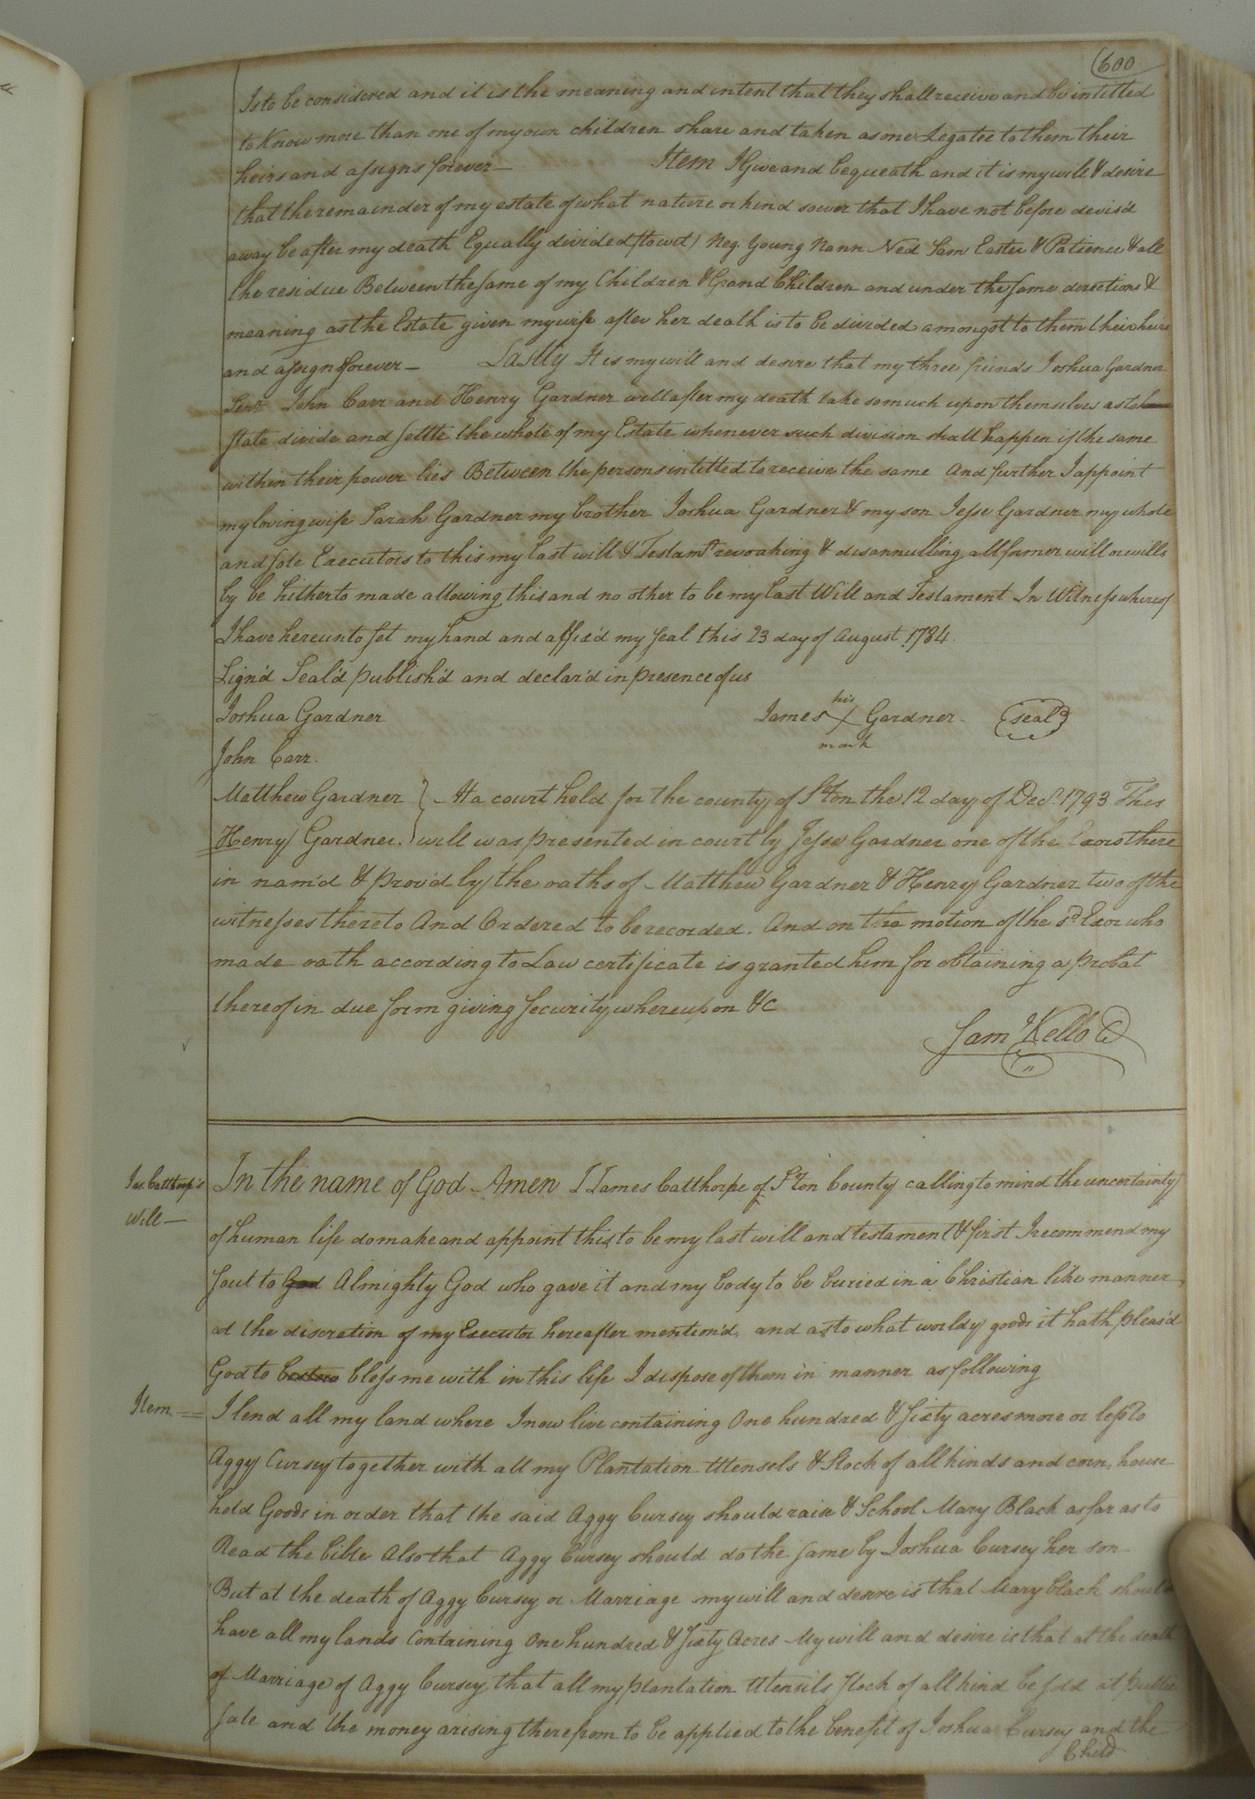 600
Is to be considered and it is the meaning and intent that they shall receive and be intitled
to know more than one of my own children share and taken as one Legatee to them their
heirs and assigns forever— Item I Give and bequeath and it is my will & desire
that the remainder of my estate of what nature or kind sower that I have not before devis'd
away be after my death Equally divided (to wit) Neg. Young Nann Ned Sam Easter & Patience & all
the residue Between the same of my Children & Grand Children and under the same directions &
meaning as the Estate given my wife after her death is to be divided amongst to them their heirs
and assigns forever— Lastly It is my will and desire that my three friends Joshua Gardner
Senr. John Carr and Henry Gardner will after my death take so much upon themselves as to
state divide and settle the whole of my Estate whenever such division shall happen if the same
within their power lies Between the persons intitled to receive the same And further I appoint
my loving wife Sarah Gardner my brother Joshua Gardner & my son Jesse Gardner my whole
and sole Executors to this my last will & Testamt. revoaking & disannulling all former will or wills
by be hitherto made allowing this and no other to be my last Will and Testament In Witness whereof
I have hereunto set my hand and affix'd my seal this 23 day of August 1784.
Sign'd Seal'd publish'd and declar'd in presence of us
Joshua Gardner James his X mark Gardner (seal)
John Carr.
Matthew Gardner } At a court held for the county of S°.ton the 12 day of Decr. 1793 This
Henry Gardner. } will was presented in court by Jesse Gardner one of the Exors there
in nam'd & prov'd by the oaths of Matthew Gardner & Henry Gardner two of the
witnesses thereto And Ordered to be recorded. And on the motion of the sd. Exor who
made oath according to Law certificate is granted him for obtaining a probat
thereof in due form giving security whereupon &c
Sam Kello C
Jas. Catthorp's
Will—
In the name of God Amen I James Catthorpe of S°.ton County calling to mind the uncertainty
of human life do make and appoint this to be my last will and testament & first I recommend my
soul to God Almighty God who gave it and my body to be buried in a Christian like manner
at the discretion of my Executor hereafter mention'd, and as to what worldy goods it hath pleas'd
God to bless me with in this life I dispose of them in manner as following
Item
I lend all my land where I now live containing One hundred & sixty acres more or less to
Aggy Cursey together with all my Plantation Utensels & Stock of all kinds and corn, house
hold Goods in order that the said Aggy Cursey should raise & School Mary Black as far as to
Read the bible Also that Aggy Cursey should do the same by Joshua Cursey her son
But at the death of Aggy Cursey or Marriage my will and desire is that Mary black should
have all my lands Containing One hundred & sixty Acres My will and desire is that at the death
of Marriage of Aggy Cursey that all my plantation Utensils stock of all kind be sold at public
sale and the money arising therefrom to be applied to the benefit of Joshua Cursey and the
Child